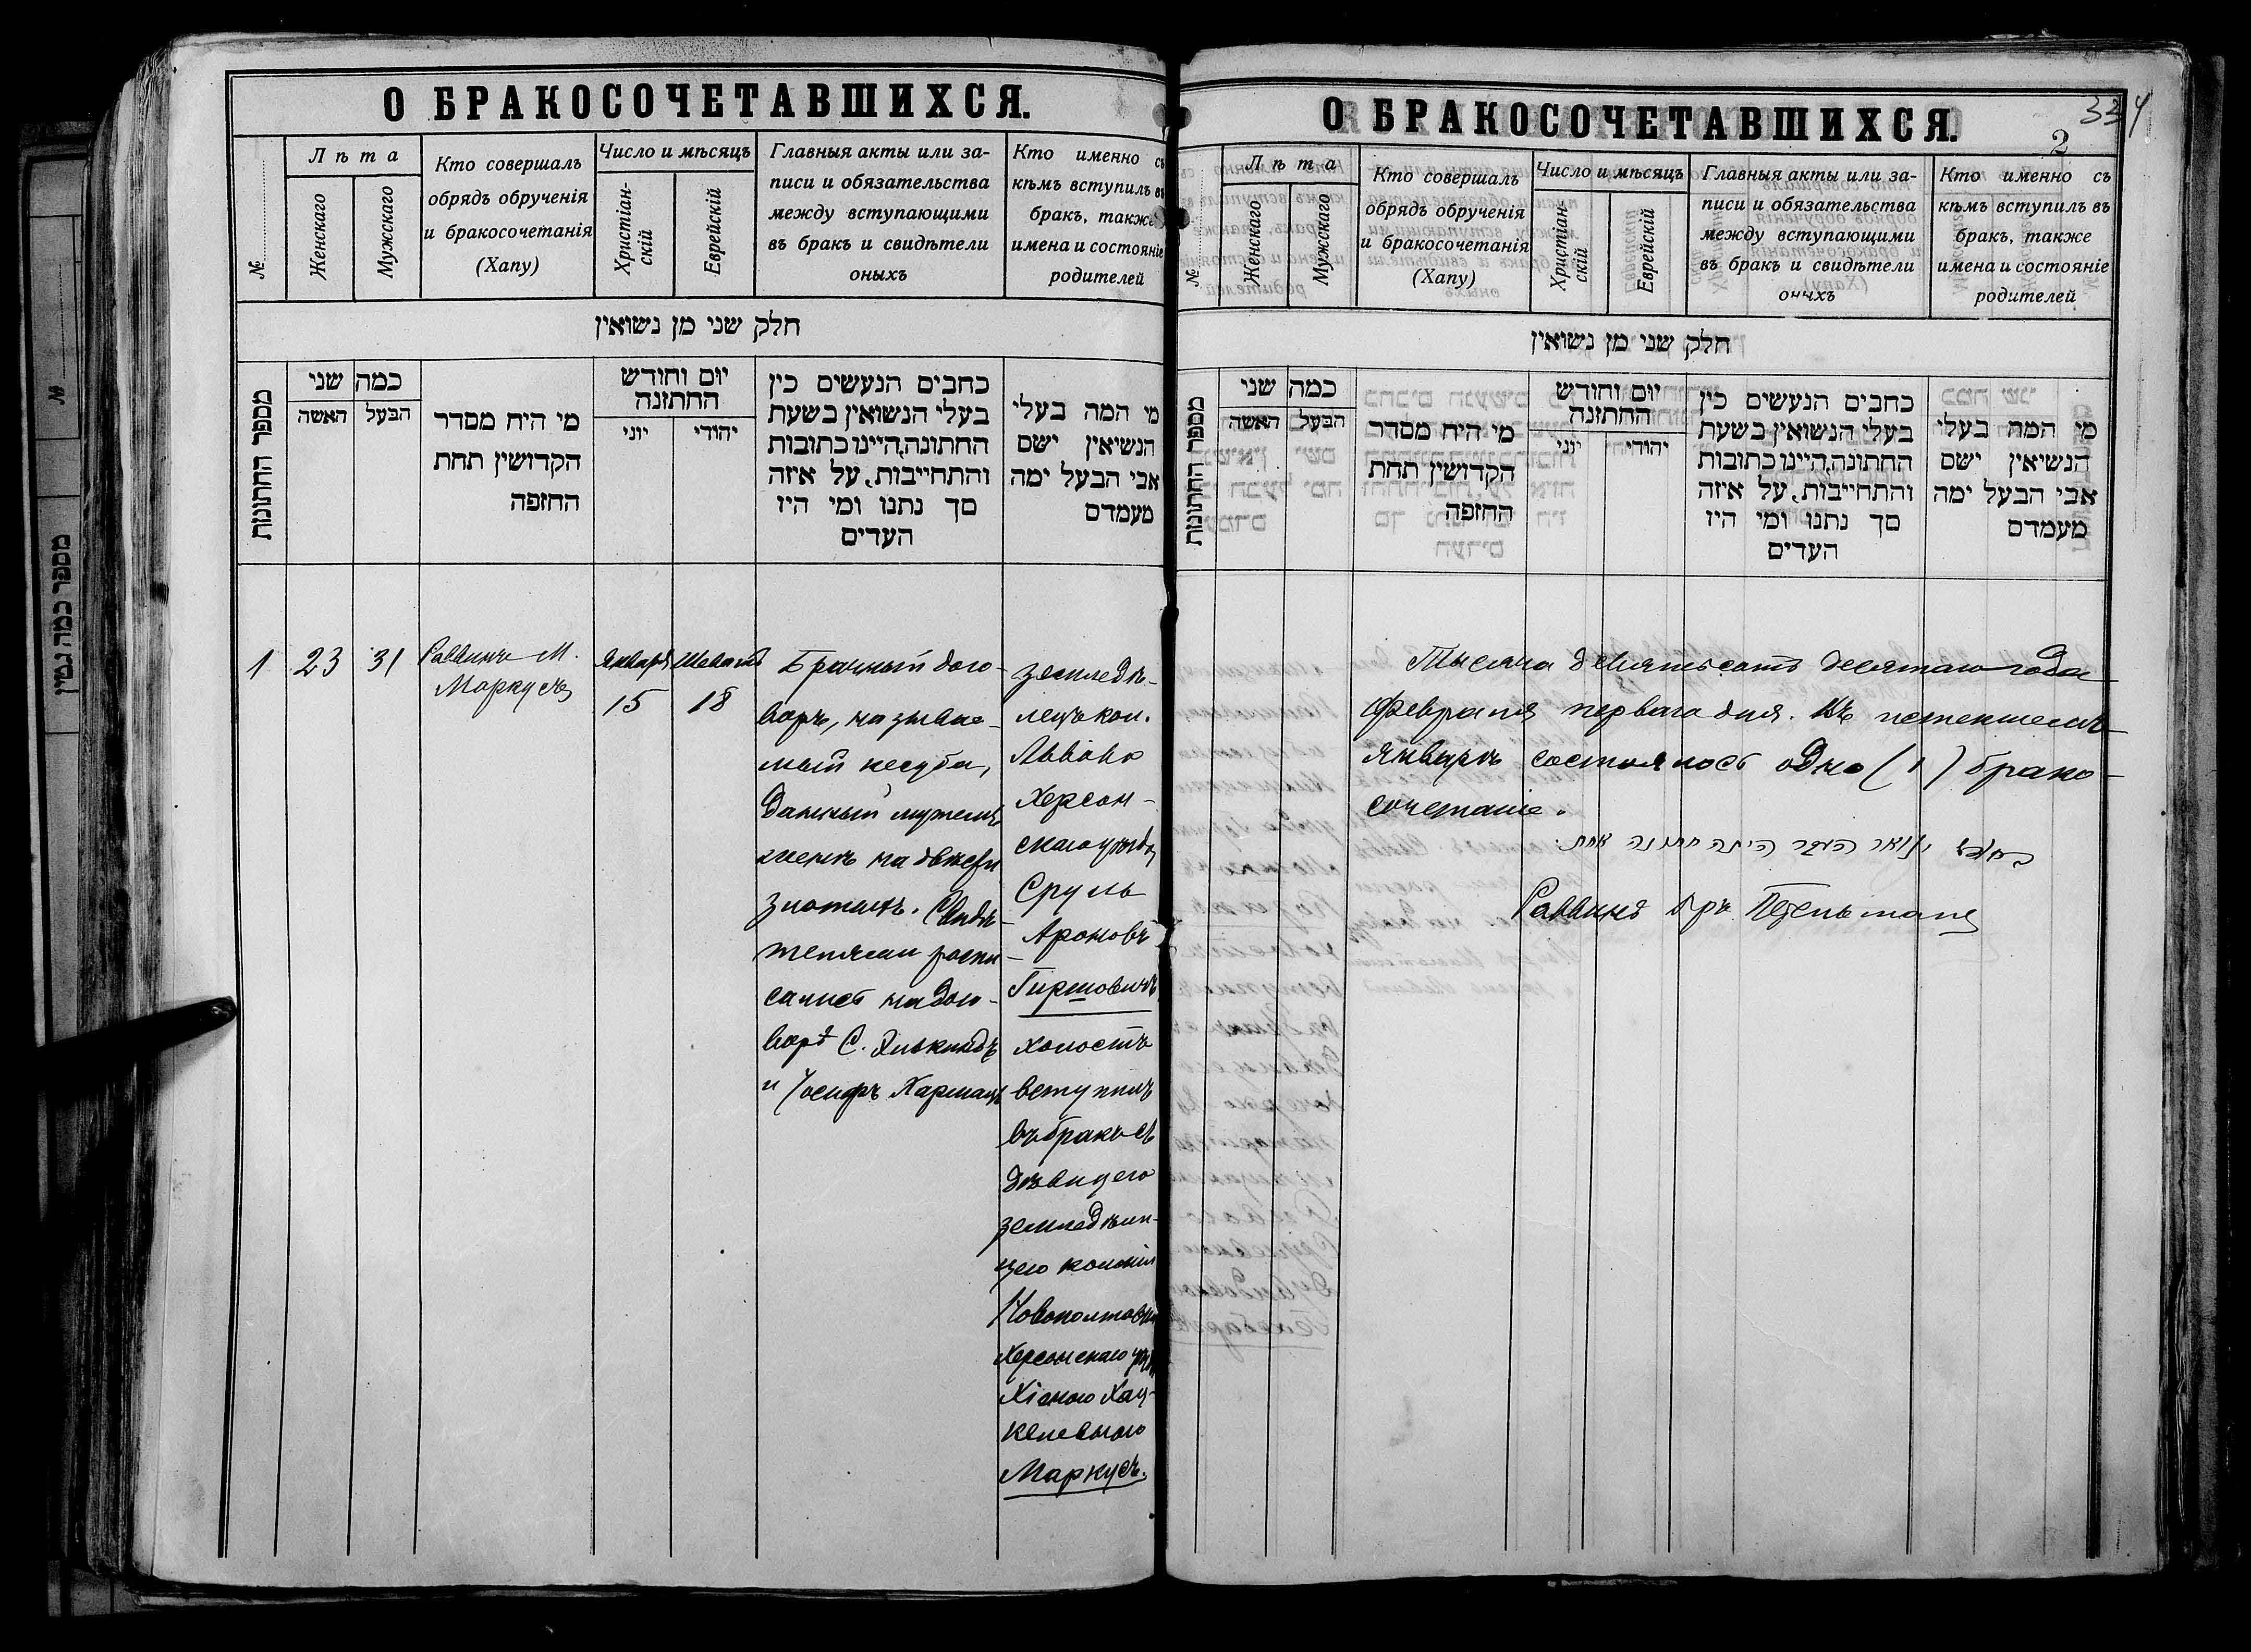 О БРАКОСОЧЕТАВШИХСЯ.
№
Лѣта
Женскаго
Мужскаго
Кто совершалъ
обрядъ обрученія
и бракосочетанія
(Хапу)
Число и мѣсяцъ
Христіан-
скій
Еврейскій
Главныя акты или за-
писи и обязательства
между вступающими
въ бракъ и свидѣтели
оныхъ
Кто именно съ
кѣмъ вступилъ въ
бракъ, также
имена и состояніе
родителей
חלק שני מן נשואין
מספר החתונות
כמה שני
האשה
הבעל
מי היח מסדר
הקדושין תחת
החופה
יום וחודש
החתונה
יוני
יהודי
כחבים הנעשים כין
בעלי הנשואין בשעת
החתונה,היינו כתובות
והתחייבות, על איזה
סך נתנו ומי היו
העדים
מי המה בעלי
הנשיאין ישם
אבי הבעל ימה
מעמדם
1
23
31
Раввинъ М.
Маркусъ
Января
15
Шеватъ
18
Брачный дого-
воръ, называе-
мый кесуба,
данный мужемъ
женѣ на двѣсти
злотыхъ. Свидѣ-
телями распи-
сались на дого-
ворѣ С. Элькиндъ
и Іосифъ Хармацъ
земледѣ-
лецъ кол.
Львово
Херсон-
скаго уѣзда
Сруль
Ароновъ
Гиршовичъ
холостъ
вступилъ
въ бракъ съ
дѣвицею
земледѣли-
цею колоніи
Новополтавки
Херсонскаго уѣзда
Хіеною Хац-
келевною
Маркусъ.
334
2
О БРАКОСОЧЕТАВШИХСЯ.
№
Лѣта
Женскаго
Мужскаго
Кто совершалъ
обрядъ обрученія
и бракосочетанія
(Хапу)
Число и мѣсяцъ
Христіан-
скій
Еврейскій
Главныя акты или за-
писи и обязательства
между вступающими
въ бракъ и свидѣтели
оныхъ
Кто именно съ
кѣмъ вступилъ въ
бракъ, также
имена и состояніе
родителей
חלק שני מן נשואין
מספר החתונות
כמה שני
האשה
הבעל
מי היח מסדר
הקדושין תחת
החופה
יום וחודש
החתונה
יוני
יהודי
כחבים הנעשים כין
בעלי הנשואין בשעת
החתונה,היינו כתובות
והתחייבות, על איזה
סך נתנו ומי היו
העדים
מי המה בעלי
הנשיאין ישם
אבי הבעל ימה
מעמדם
Тысяча девятьсотъ десятаго года
февраля перваго дня. Въ истекшемъ
январѣ состоялось одно (1) брако-
сочетаніе.
בחודש ינואר העבר היתה חתונה אחת.
Раввинъ
№
מספר כמה נשוין